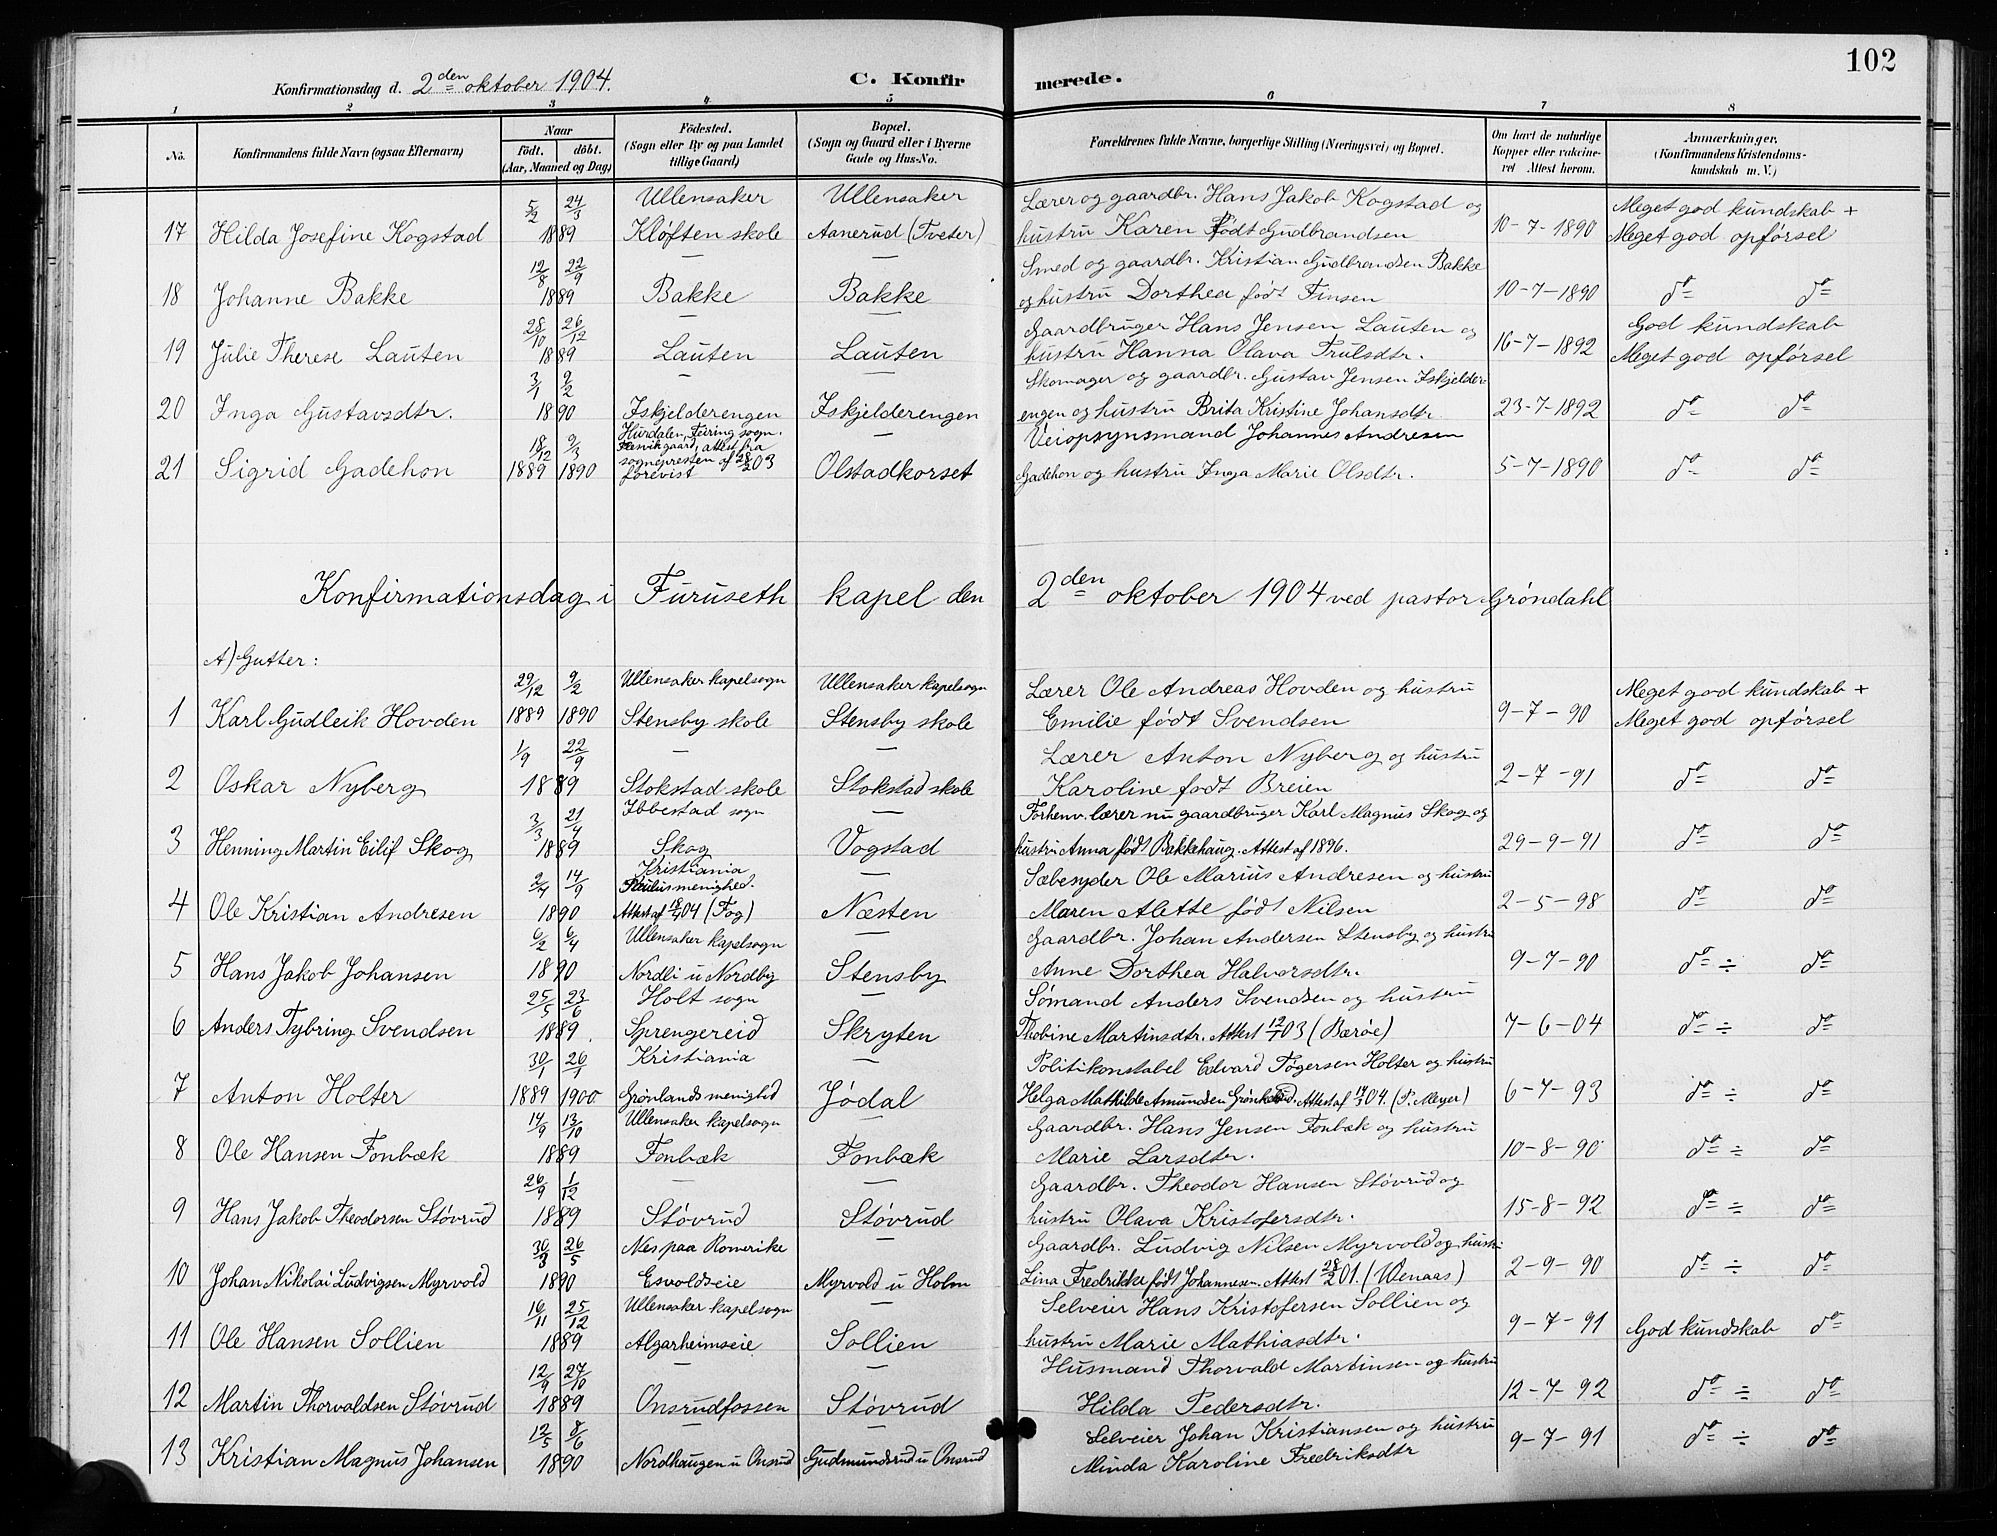 102
Konfirmationsdag d. 2den oktober 1904.
C. Konfirmerede.
1 2 3 4 5 6 7 8
No.
Konfirmandens fulde Navn (ogsaa Efternavn)
Naar
Födt. döbt.
(Aar, Maaned og Dag)
Födested.
(Sogn eller By og paa Landet
tillige Gaard)
Bopæl.
(Sogn og Gaard eller i Byerne
Gade og Hus-No.
Forældrenes fulde Navne, borgerlige Stilling (Næringsvei) og Bopæl.
Om havt de naturlige
Kopper eller vakcine-
ret Attest herom.
Anmærkninger,
(Konfirmandens Kristendoms-
kundskab m. V.)
5/2 24/3 Ullensaker Ullensaker Lærer og gaardbr. Hans Jakob Kogstad og Meget god kundskab +
17 Hilda Josefine Kogstad 1889 Kløften skole Aanerud (Tveter) hustru Karen født Gudbrandsen 10-7-1890 Meget god opførsel
12/8 22/9 — — Smed og gaardbr. Kristian Gudbrandsen Bakke
18 Johanne Bakke 1889 Bakke Bakke og hustru Dorthea født Finsen 10-7-1890 do do
28/10 26/12 Gaardbruger Hans Jensen Lauten og God kundskab
19 Julie Therese Lauten 1889 Lauten Lauten hustru Hanna Olava Trulsdtr. 16-7-1892 Meget god opførsel
3/1 2/2 — — Skomager og gaardbr. Gustav Jensen Iskjelder-
20 Inga Gustavsdtr. 1890 Iskjelderengen Iskjelderengen engen og hustru Brita Kristine Johansdtr. 23-7-1892 do do
18/12 2/3 Hurdalen, Feiring sogn. — Veiopsynsmand Johannes Andresen
gaard, attest fra
sognepresten af 28/2 03
21 Sigrid Gadehon 1889 1890 forevist Olstadkorset Gadehon og hustru Inga Marie Olsdtr. 5-7-1890 do do
Konfirmationsdag i Furuseth kapel den 2den oktober 1904 ved pastor Grøndahl
A) Gutter:
29/12 9/2 Ullensaker kapelsogn Ullensaker kapelsogn Lærer Ole Andreas Hovden og hustru Meget god kundskab +
1 Karl Gudleik Hovden 1889 1890 Stensby skole Stensby skole Emilie født Svendsen 9-7-90 Meget god opførsel
1/9 22/9 — — Lærer Anton Nyberg og hustru
2 Oskar Nyberg 1889 Stokstad skole Stokstad skole Karoline født Breien 2-7-91 do do
3/3 21/4 Ibbestad sogn — Forhenv. lærer nu gaardbruger Karl Magnus Skog og
3 Henning Martin Eilif Skog 1889 Skog Vogstad hustru Anna født Bakkehaug. Attest af 1896. 29-9-91 do do
2/4 14/9 Kristiania — Sæbesyder Ole Marius Andresen og hustru
Paulus menighed.
4 Ole Kristian Andresen 1890 Attest af 18/7 04 (Fog) Næsten Maren Alette født Nilsen 2-5-98 do do
6/2 6/4 Ullensaker kapelsogn Gaardbr. Johan Andersen Stensby og hustru
5 Hans Jakob Johansen 1890 Nordli u Nordby Stensby Anne Dorthea Halvorsdtr. 9-7-90 do ÷ do
25/5 23/6 Holt sogn — Sømand Anders Svendsen og hustru
6 Anders Tybring Svendsen 1889. Sprengereid Skryten Thobine Martinsdtr. Attest 12/1 03 (Bærøe) 7-6-04 do ÷ do
30/1 26/1 Kristiania — Politikonstabel Edvard Tøgersen Holter og hustru
7 Anton Holter 1889 1900 Grønlands menighed Jødal Helga Mathilde Amundsen Attest af 04. (P. Meyer) 6-7-93 do ÷ do
14/9 13/10 Ullensaker kapelsogn Gaardbr. Hans Jensen Fonbæk og hustru
8 Ole Hansen Fonbæk 1889 Fonbæk Fonbæk Marie Larsdtr. 10-8-90 do ÷ do
26/9 1/12 — Gaardbr. Theodor Hansen Støvrud og
9 Hans Jakob Theodorsen Støvrud 1889 Støvrud Støvrud hustru Olava Kristofersdtr. 15-8-92 do ÷ do
30/3 26/5 Nes paa Romerike Gaardbr. Ludvig Nilsen Myrvold og hustru
10 Johan Nikolai Ludvigsen Myrvold 1890 Esvoldseie Myrvold u Holm Lina Fredrikke født Johannesen. Attest 28/2 01. (Wenaas) 2-9-90 do ÷ do
16/11 25/12 Ullensaker kapelsogn — Selveier Hans Kristofersen Sollien og
11 Ole Hansen Sollien 1889 Algarheimseie Sollien hustru Marie Mathiasdtr. 9-7-91 God kundskab do
12/9 27/10 — — Husmand Thorvald Martinsen og hustru
12 Martin Thorvaldsen Støvrud 1889 Onsrudfossen Støvrud Hilda Pedersdtr. 12-7-92 do ÷ do
12/5 8/6 — Selveier Johan Kristiansen og hustru
13 Kristian Magnus Johansen 1890 Nordhaugen u Onsrud Gudmundsrud u Onsrud Minda Karoline Fredriksdtr 9-7-91 do ÷ do